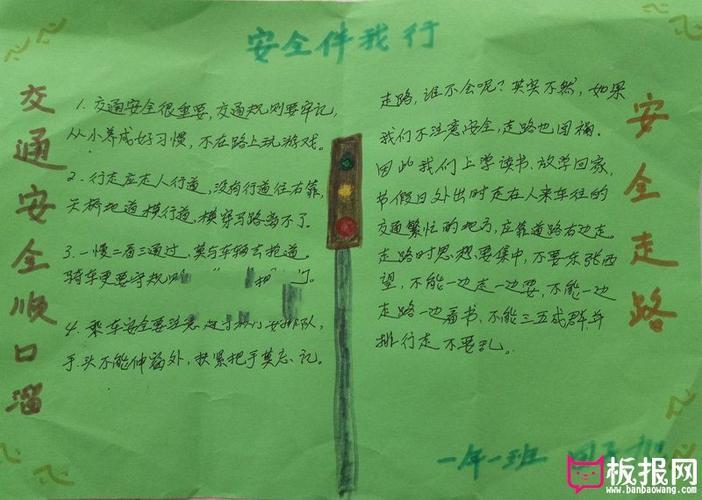 安全伴我行
交通安全顺口溜
1. 交通安全很重要，交通规则要牢记，
从小养成好习惯，不在路上玩游戏。
2. 行走应走人行道，没有行道往右靠，
天桥地道横行道，横穿马路当不了。
3. 一慢二看三通过，莫与车辆去抢道，
骑车更要守规则
4. 乘车安全要注意 排队，
手头不能伸窗外，扶紧把手莫忘记。
安全走路
走路，谁不会呢？其实不然，如果
我们不注意安全，走路也闯祸。
因此我们上学读书、放学回家、
节假日外出时走在人来车往的
交通繁忙的地方，应靠道路右边走，
走路时思想要集中，不要东张西
望，不能一边走一边耍，不能一边
走路一边看书，不能三五成群并
排行走不要乱。
一年一班
板报网
www.banbaowang.com